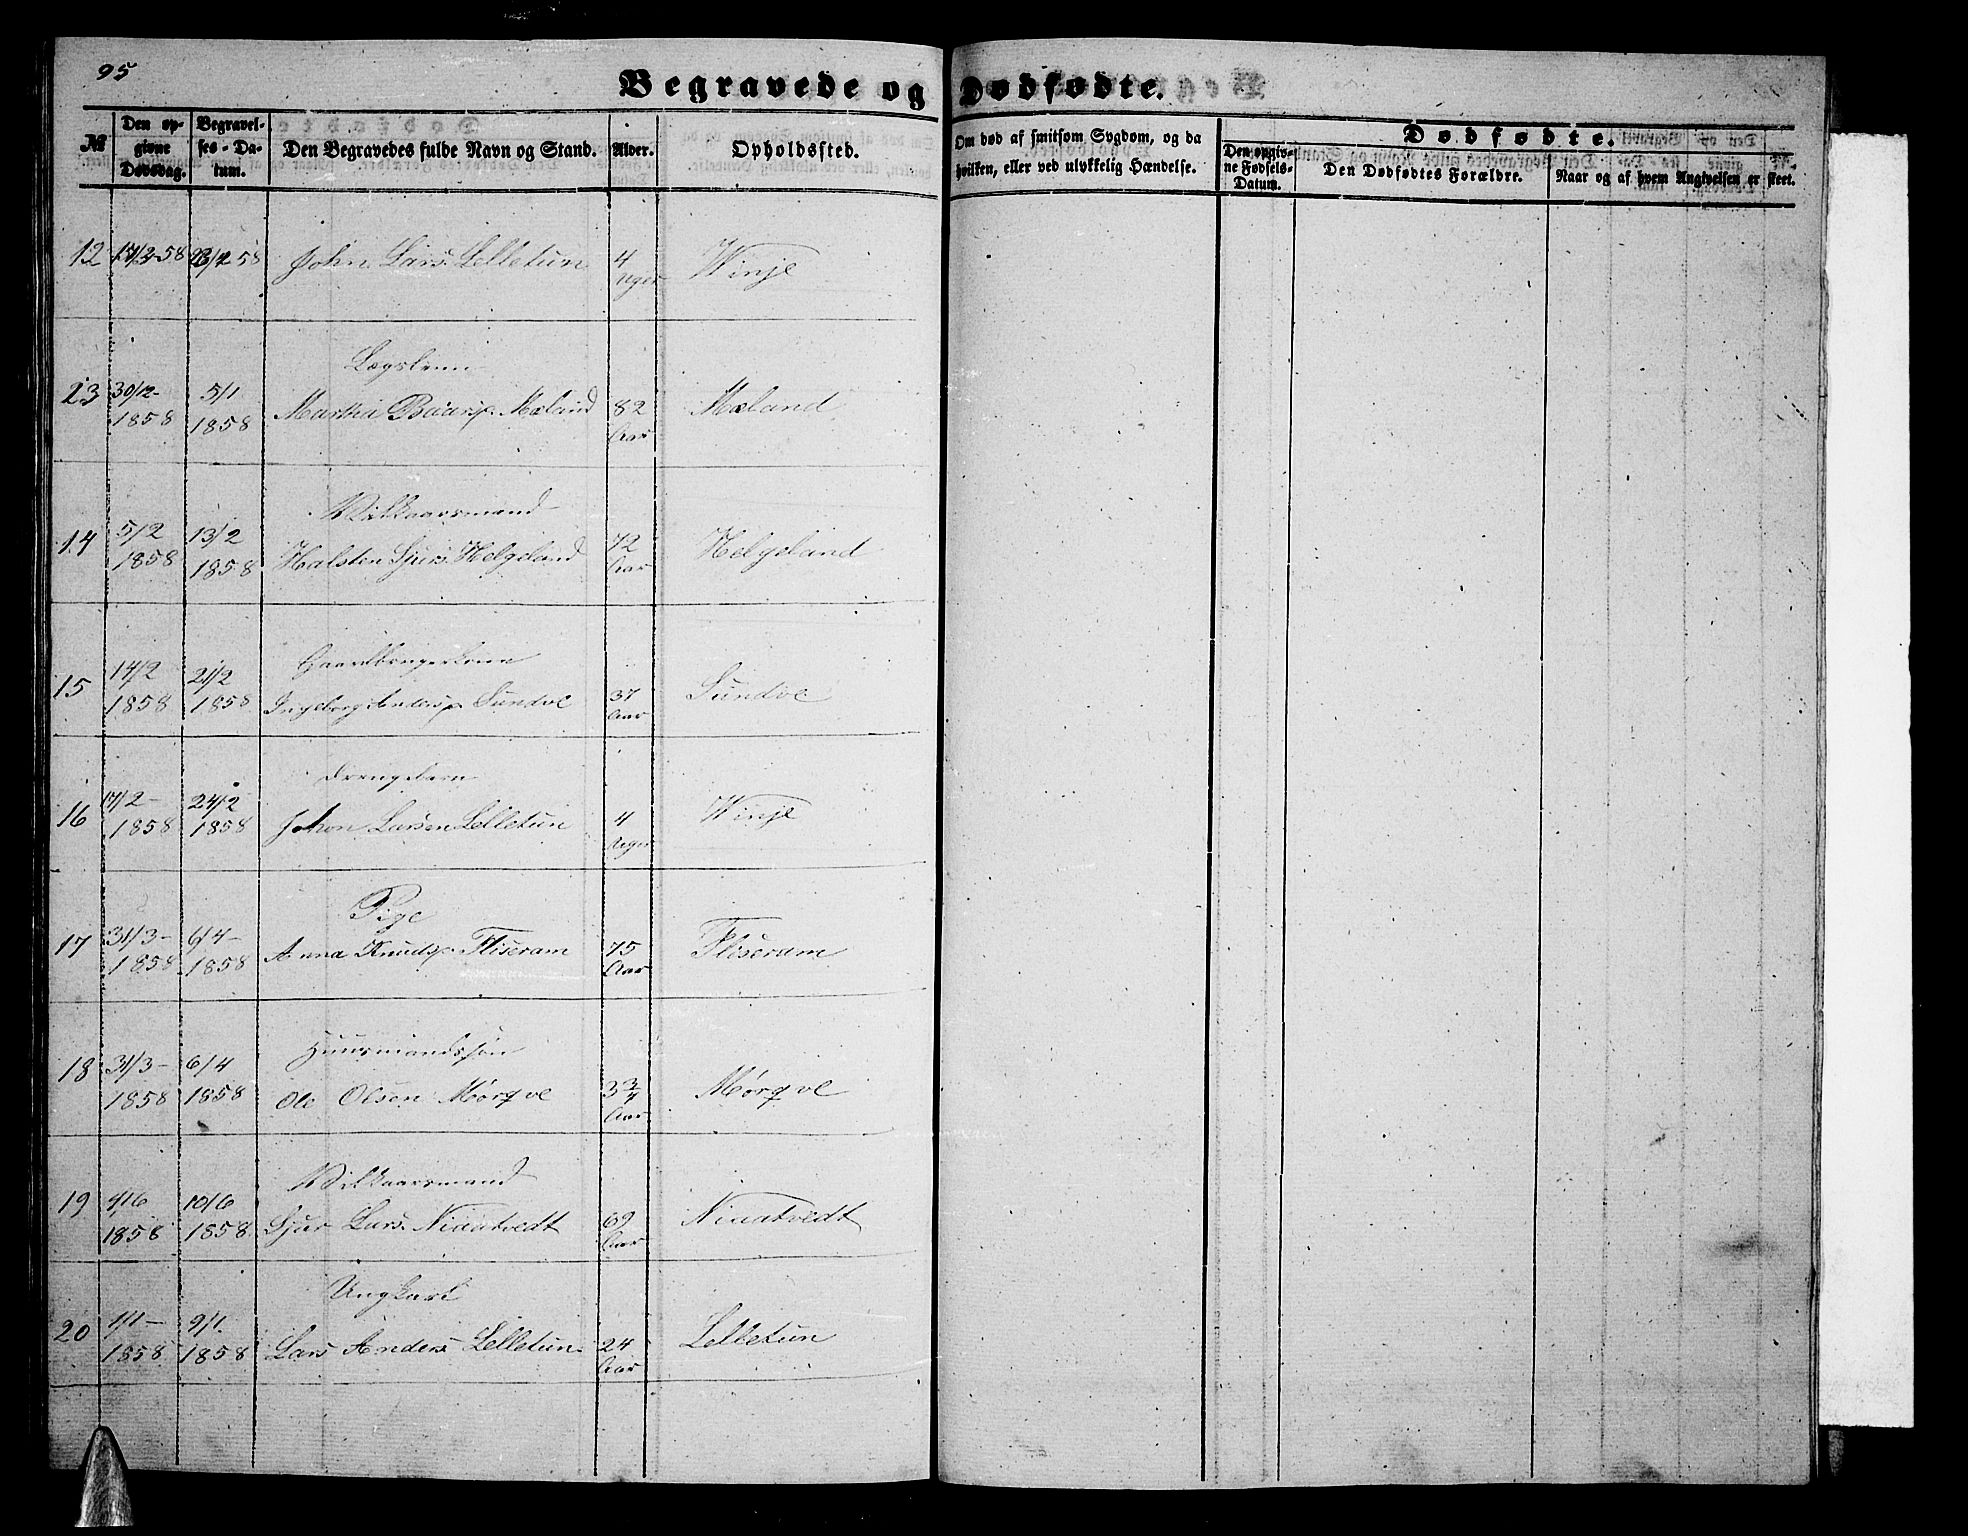 95
Begravede og Dødfødte.
№
Den opgivne Dødsdag.
Begravelses-Datum.
Den Begravedes fulde Navn og Stand.
Alder.
Opholdssted.
Om død af smitsom Sygdom, og da hvilken, eller ved ulykkelig Hændelse.
Dødfødte.
Den opgivne Fødsels-Datum.
Den Dødfødtes Forældre.
Naar og af hvem Angivelsen er skeet.
12 17/2 58 58 John Lars. Lelletun 4 Winje
Uger
23 30/12 5/1 Martha Baarsp. Mæland 82 Mæland
1858 1858 Aar
Wilkaarsmand
14 5/2 13/2 Halsten Sjurs. Helgeland 72 Helgeland
1858 1858 Aar
Gaardbrugerkone
15 14/2 21/2 Ingeborg Andersp. Sundve 37 Sundve
1858 1858 Aar
Drengebarn
16 17/2 - 24/2 Johon Larsen Lelletun 4 Winje
1858 1858 Uger
Pige
17 31/3 - 6/4 - Anna Knudsp. Fliseram 75 Fliseram
1858 1858 Aar
Huusmandssøn
18 31/3 - 6/4 Ole Olsen Mørqve 3 3/4 Mørqve
1858 1858 Aar
Wilkaarsmand
19 4/6 10/6 Sjur Lars. Niaatvedt 69 Niaatvedt
1858 1858 Aar
Ungkarl
20 1/1 - 9/1. Lars Anders. Lelletun. 24 Lelletun
1858 1858 Aar